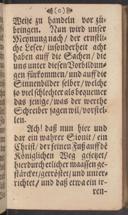 (o)
Weise zu handeln vor zu-
bringen. Nun wird unser
Meynung nach/ der ernstli-
che Leser/ insonderheit acht
haben auff die Sachen/ die
uns unter diesen Vorbildun-
gen fürkommen/ und auff die
Sinnenbilder selber/ welche
so viel schlechter als bequemer
das jenige/ was der werthe
Schreiber sagen wil/ vorstel-
len.
Ach! daß nun hier und
dar ein wahrer Sionit/ ein
Christ/ der seinen Fuß auff de
Königlichen Weg gesetzet/
hierdurch etlicher maassen ge-
stärcket/ getröstet/ und unter-
richtet/ und daß etwa ein ir-
ren-